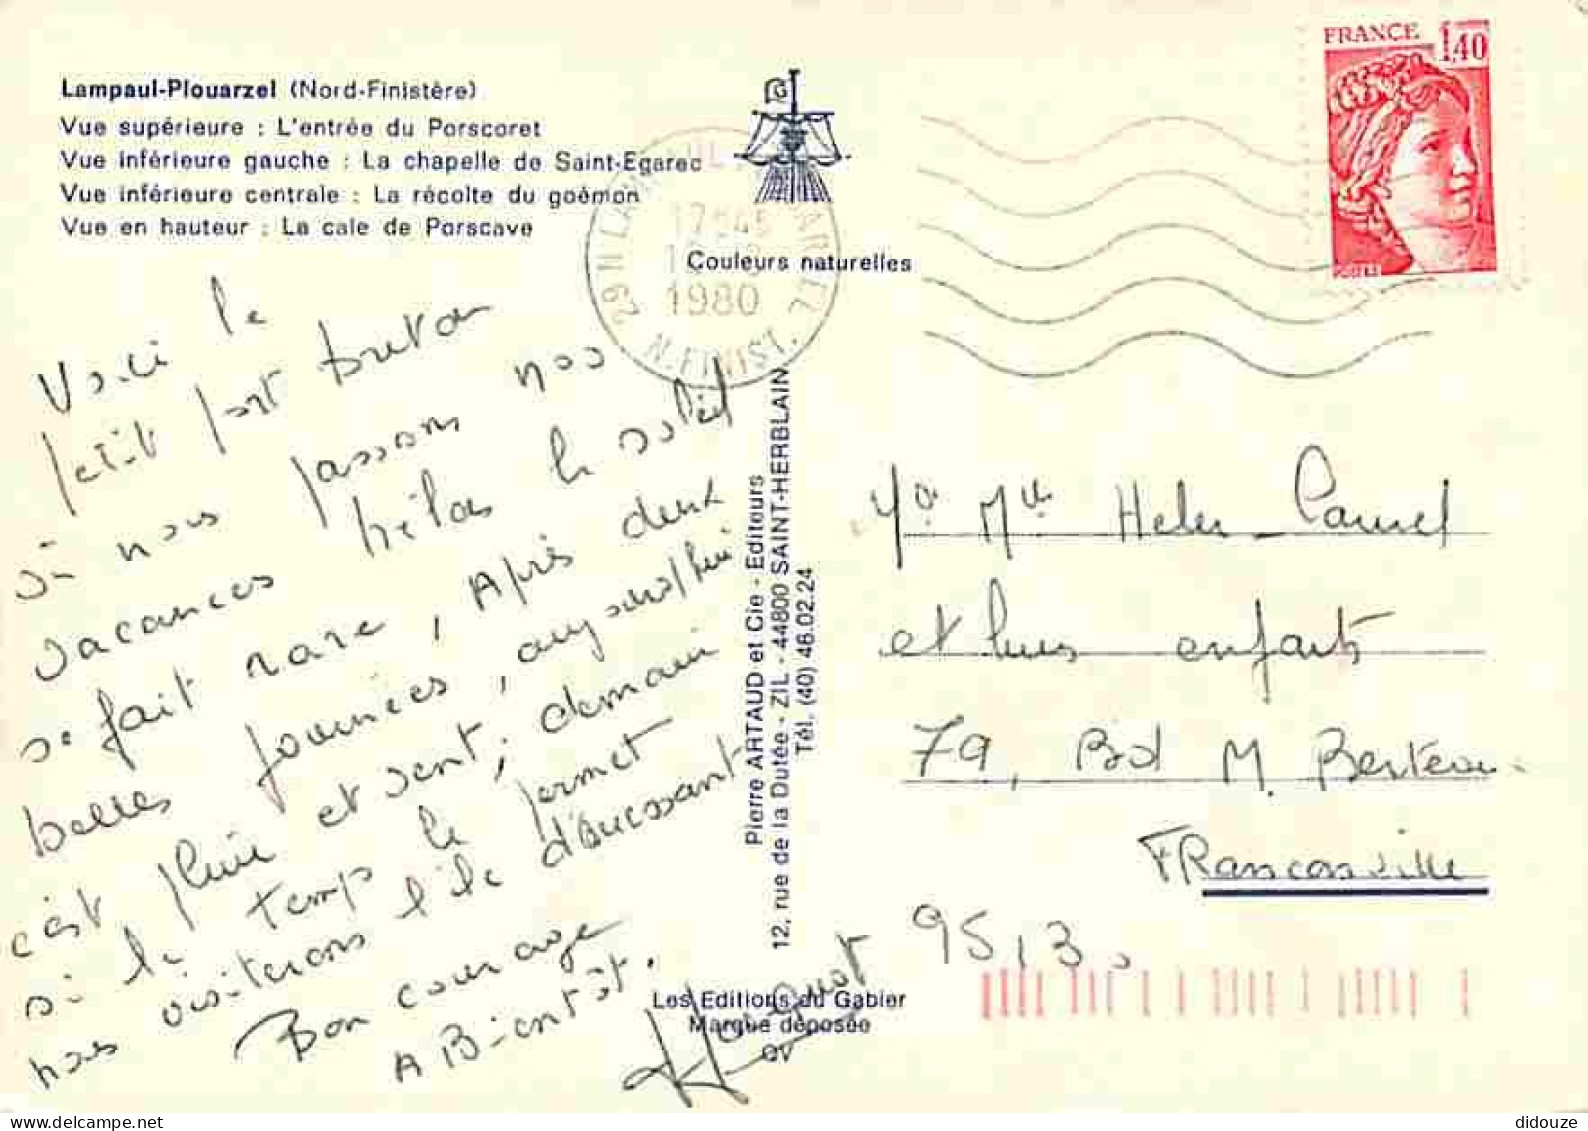 Lampaul-Plouarzel (Nord-Finistère)
Vue supérieure : L'entrée du Porscoret
Vue inférieure gauche : La chapelle de Saint-Egarec
Vue inférieure centrale : La récolte du goémon
Vue en hauteur : La cale de Porscave
Couleurs naturelles
FRANCE 1,40
1980
N. FINIST.
Voici le
petit port breton
où nous passons nos
vacances hélas le soleil
se fait rare, Après deux
belles journées, aujourd'hui
c'est pluie et vent; demain
si le temps le permet
nous visiterons l'île d'ouessant
Bon courage
A Bientôt.
Pierre ARTAUD et Cie - Editeurs
12, rue de la Dutée - ZIL - 44800 SAINT-HERBLAIN
Tél. (40) 46.02.24
Les Editions du Gabier
Marque déposée
et leurs enfants
79, Bd M. Berteaux
FRanconville
9513
delcampe.net
didouze